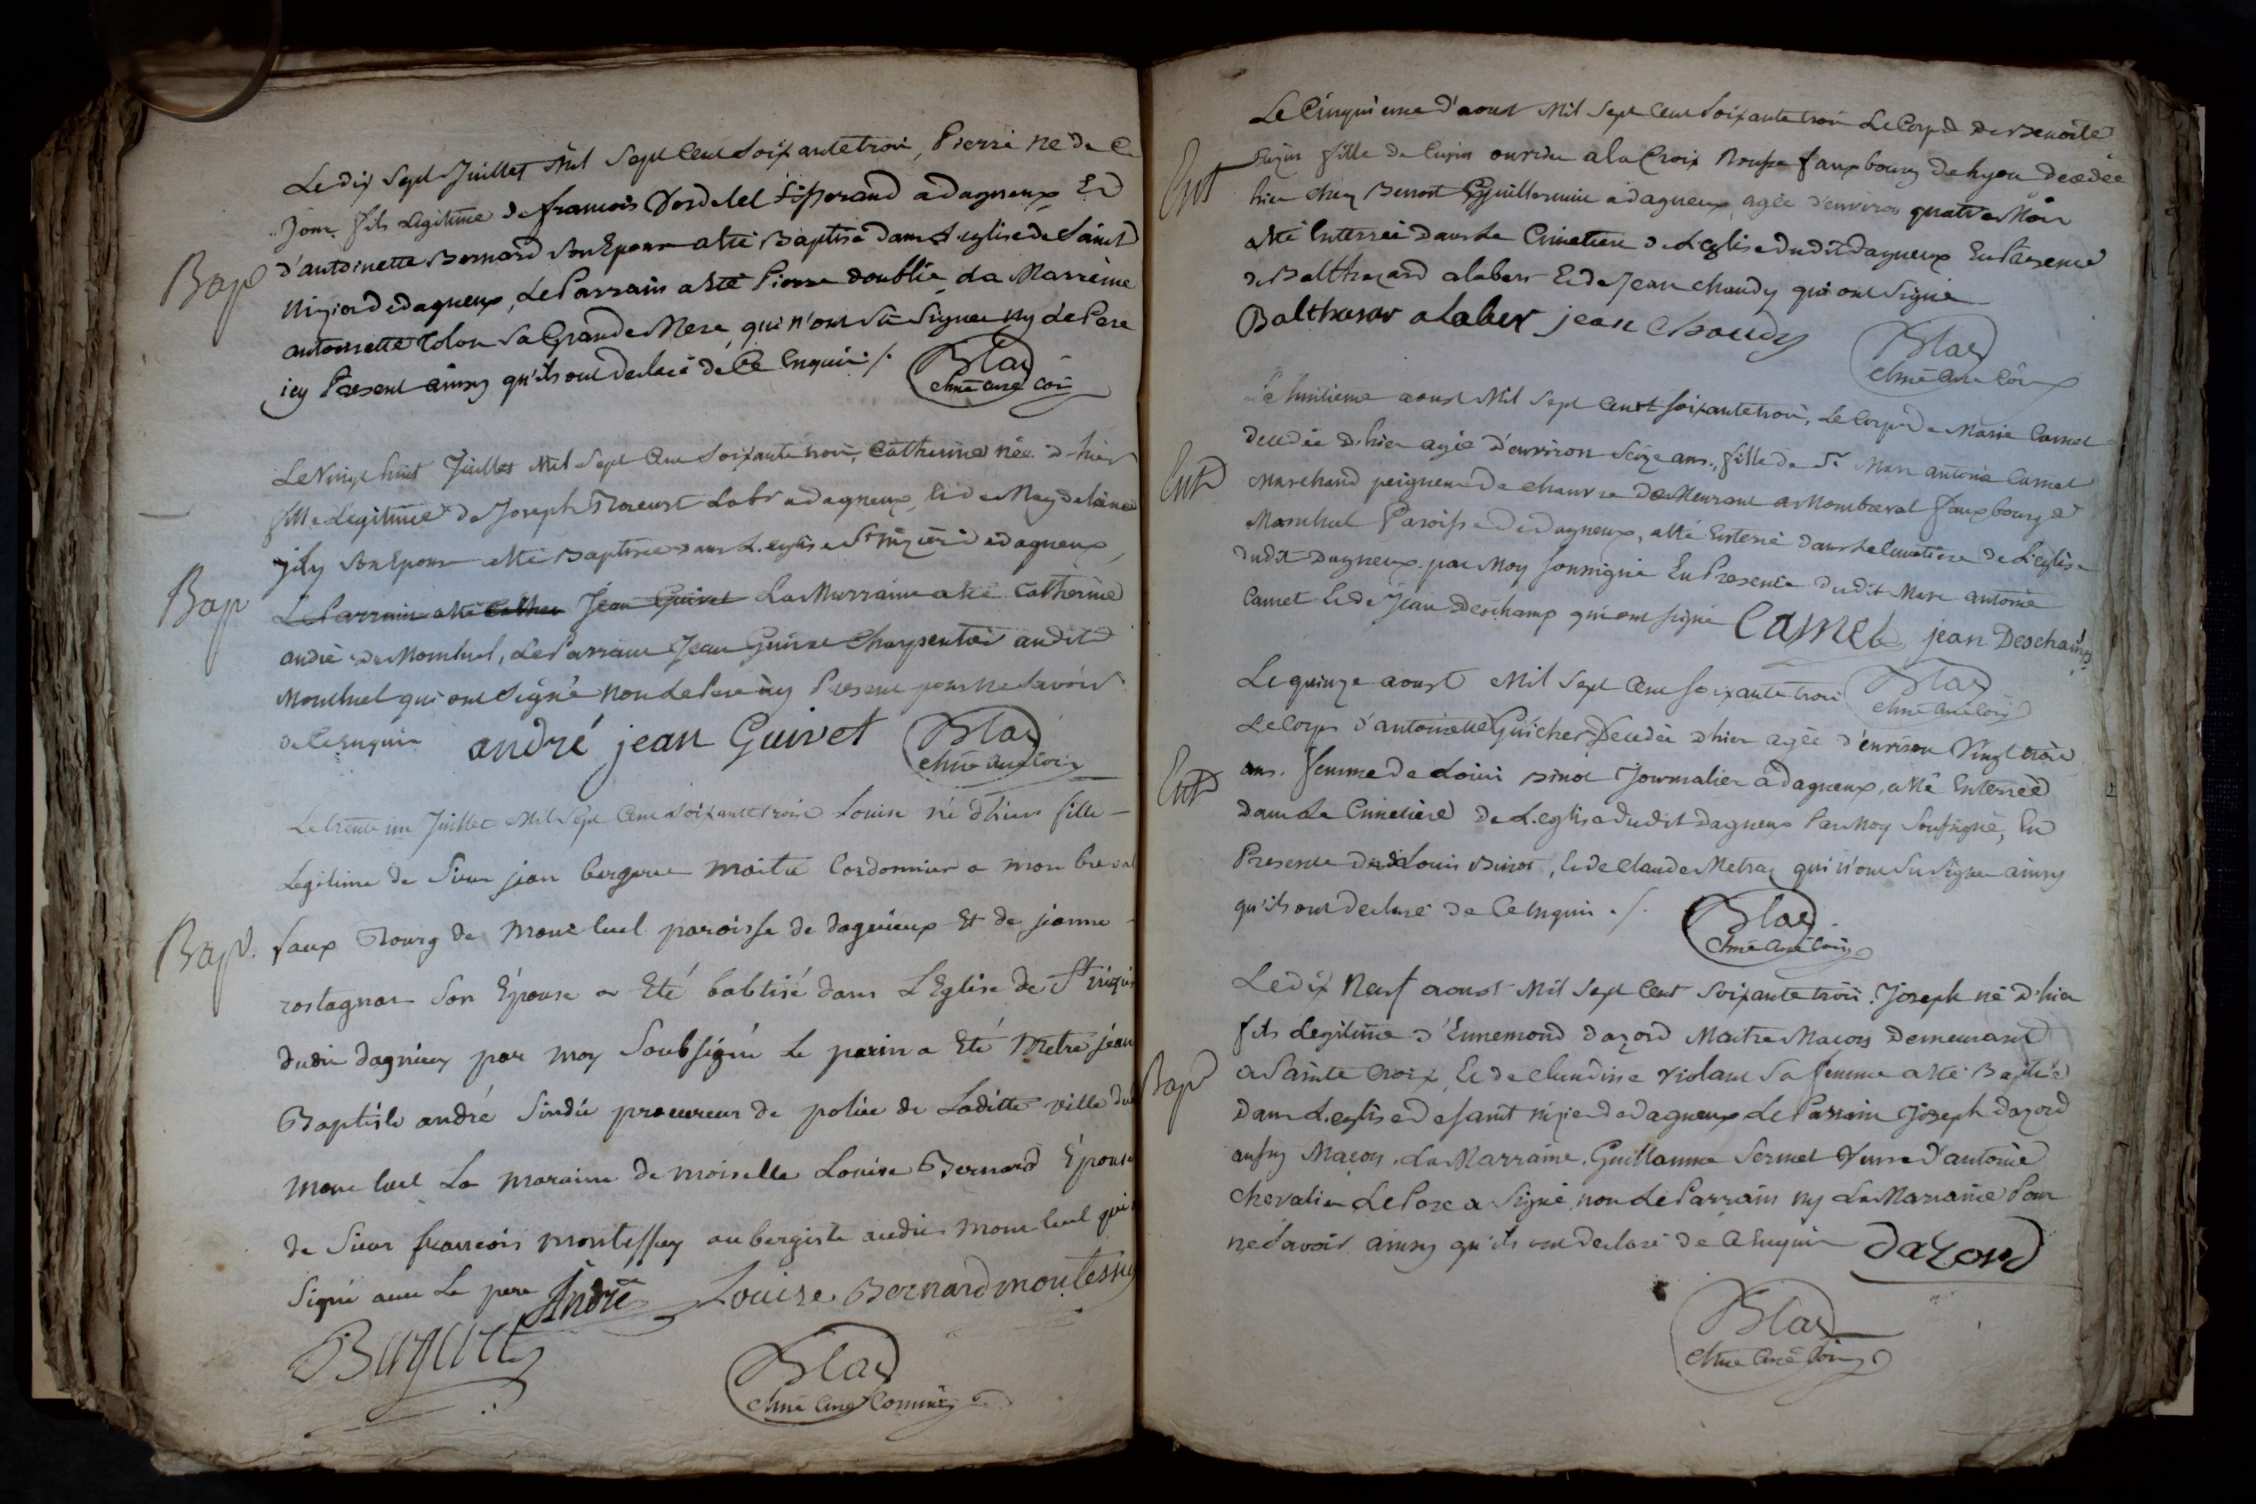 Le dix sept Juillet Mil Sept Cent Soixante trois, Pierre né de Ce
Jour fils Legitime de francois Dordelet Tisserand a dagneux Et
Bap d'antoinette Bernard Son Epouse a été Baptisé dans L'eglise de Saint
Nizier de dagneux, Le Parrain a été Pierre doublié La Marreine
antoinette Colon Sa Grande Mere, qui n'ont Sû Signer ny Le Pere
icy Present ainsy qu'ils ont declaré de Ce Enquis ./.
Blac
chne curé Coīs
Le Vingt huit Juillet Mil Sept Cent Soixante trois, Catherine née d'hier
fille Legitime de Joseph Labr a dagneux, Et de Magdelaine
Son Epouse a été Baptisée dans L'eglise St nizier de dagneux,
Bap Le Parrain a été Jean Guivet La Marraine a été Catherine
andré de Montluel, Le Parrain Jean Guivet Charpentier audit
Montluel qui ont Signé non Le Pere icy Present pour ne Savoir
de Ce Enquis andré jean Guivet Blac
chne curé Coīs
Le trente un Juillet Mil Sept Cent Soixante trois Louise né d'hier fille
Legitime de Sieur jean maitre Cordonnier a mon breval
Bap. faux Bourg de Mont luel paroisse de dagnieux Et de jeanne
rostagnat Son Epouse a Eté babtisé dans L'Eglise de St nizier
dudit dagnieu par moy Soubsigné Le parin a Eté Metre jéan
Baptiste andré Sindic procureur de police de Laditte ville de
Mont luel La maraine de moiselle Louise Bernard Épouse
de Sieur francois montessuy aubergiste audit Mont luel qui
Signé avec Le pere André Louise Bernard montessuy
Blac
chne curé Commis
Le Cinquieme d'aoust Mil Sept Cent Soixante trois Le Corps de Benoite
Ent fille de ouvrier a la Croix Rousse faux bourg de Lyon decedée
hier chez Benoit Guillermin a dagneux, agée d'environ quatre Mois
a été Enterrée dans Le Cimetiere de L'eglise dudit dagneux En Presence
de Balthazard alaber Et de Jean chaudy qui ont Signé
Balthasar alaber jean Chaudy
Blac
chne curé Coīs
Le huitieme aoust Mil Sept Cent soixante trois, Le Corps de Marie Camet
decedée d'hier agée d'environ Seize ans, fille de Sr Marc antoine Camet
Ent Marchand peigneur de chanvre demeurant a Montbreval faux bourg de
Montluel Paroisse de dagneux, a été Enterré dans Le Cimetiere de L'eglise
dudit Dagneux par Moy soussigné En Presence dudit Marc antoine
Camet Et de Jean Deschamp qui ont signé Camet jean Deschamps
Le quinze aoust Mil Sept Cent soixante trois Blac
chne curé Coīs
Le Corps d'antoinette Guicher Decedée d'hier agée d'environ Vingt trois
Ent ans. femme de Louis Binot Journalier a dagneux, a été Enterrée
Dans Le Cimetiere de L'eglise dudit dagneux Par Moy Soussigné, En
Presence dudit Louis Binot, Et de Claude Metraz qui n'ont Su Signer ainsy
qu'ils ont declaré de Ce Enquis ./.
Blac
chne curé Coīs
Le dix Neuf aoust Mil Sept Cent Soixante trois. Joseph né D'hier
fils Legitime d'Ennemond dazord Maitre Macon Demeurant
Bap a Sainte Croix, Et de Claudine Violant Sa femme a été Baptisé
Dans L'eglise de saint nizier de dagneux Le Parrain Joseph dazord
aussy Macon, La Marraine Guillauma Sermet Veuve d'antoine
Chevalier Le Pere a Signé, non Le Parrain ny La Marraine Pour
ne Savoir ainsy qu'ils ont declaré de Ce Enquis dazord
Blac
chne Curé Coīs